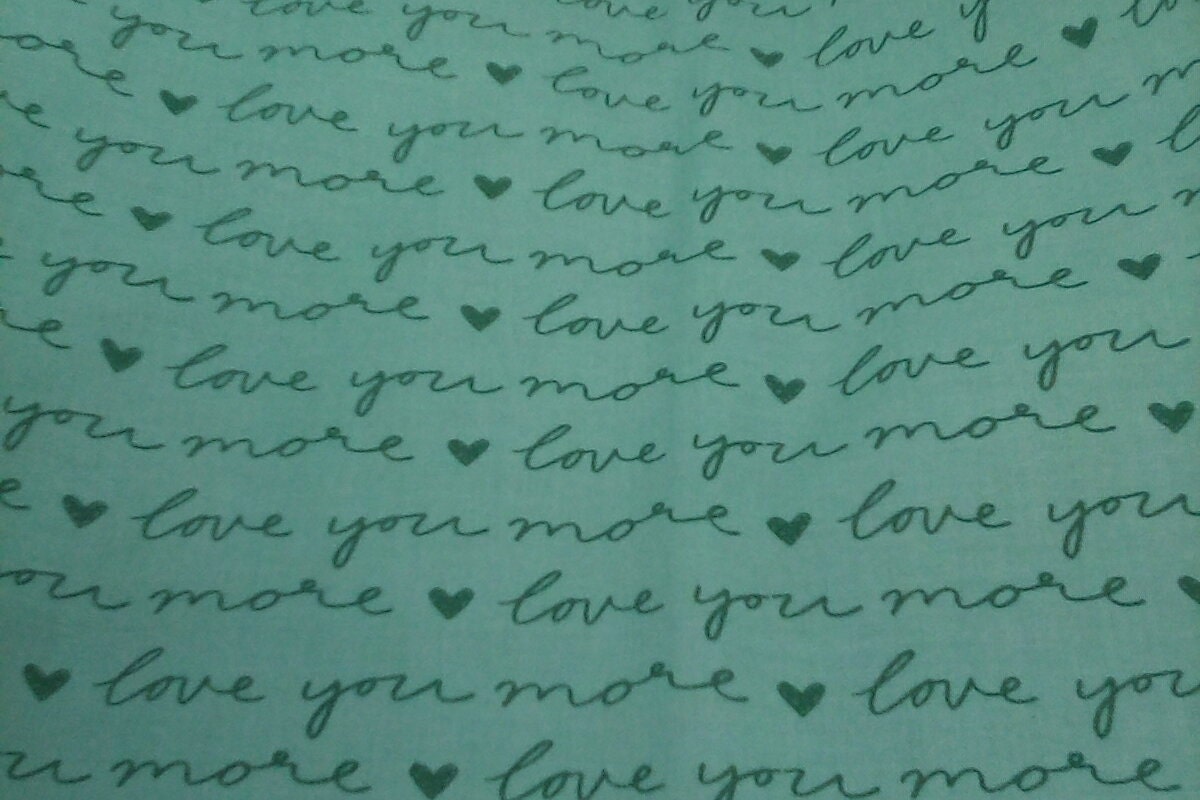 love you love you
you more ♥ love you
more ♥ love you more ♥ love
you more ♥ love you more ♥
love you more ♥ love you
you more ♥ love you more ♥
♥ love you more ♥ love you
you more ♥ love you more ♥
♥ love you more ♥ love you
you more ♥ love you more ♥
♥ love you more ♥ love you
more ♥ love you more ♥
♥ love you more ♥ love you
more ♥ love you more